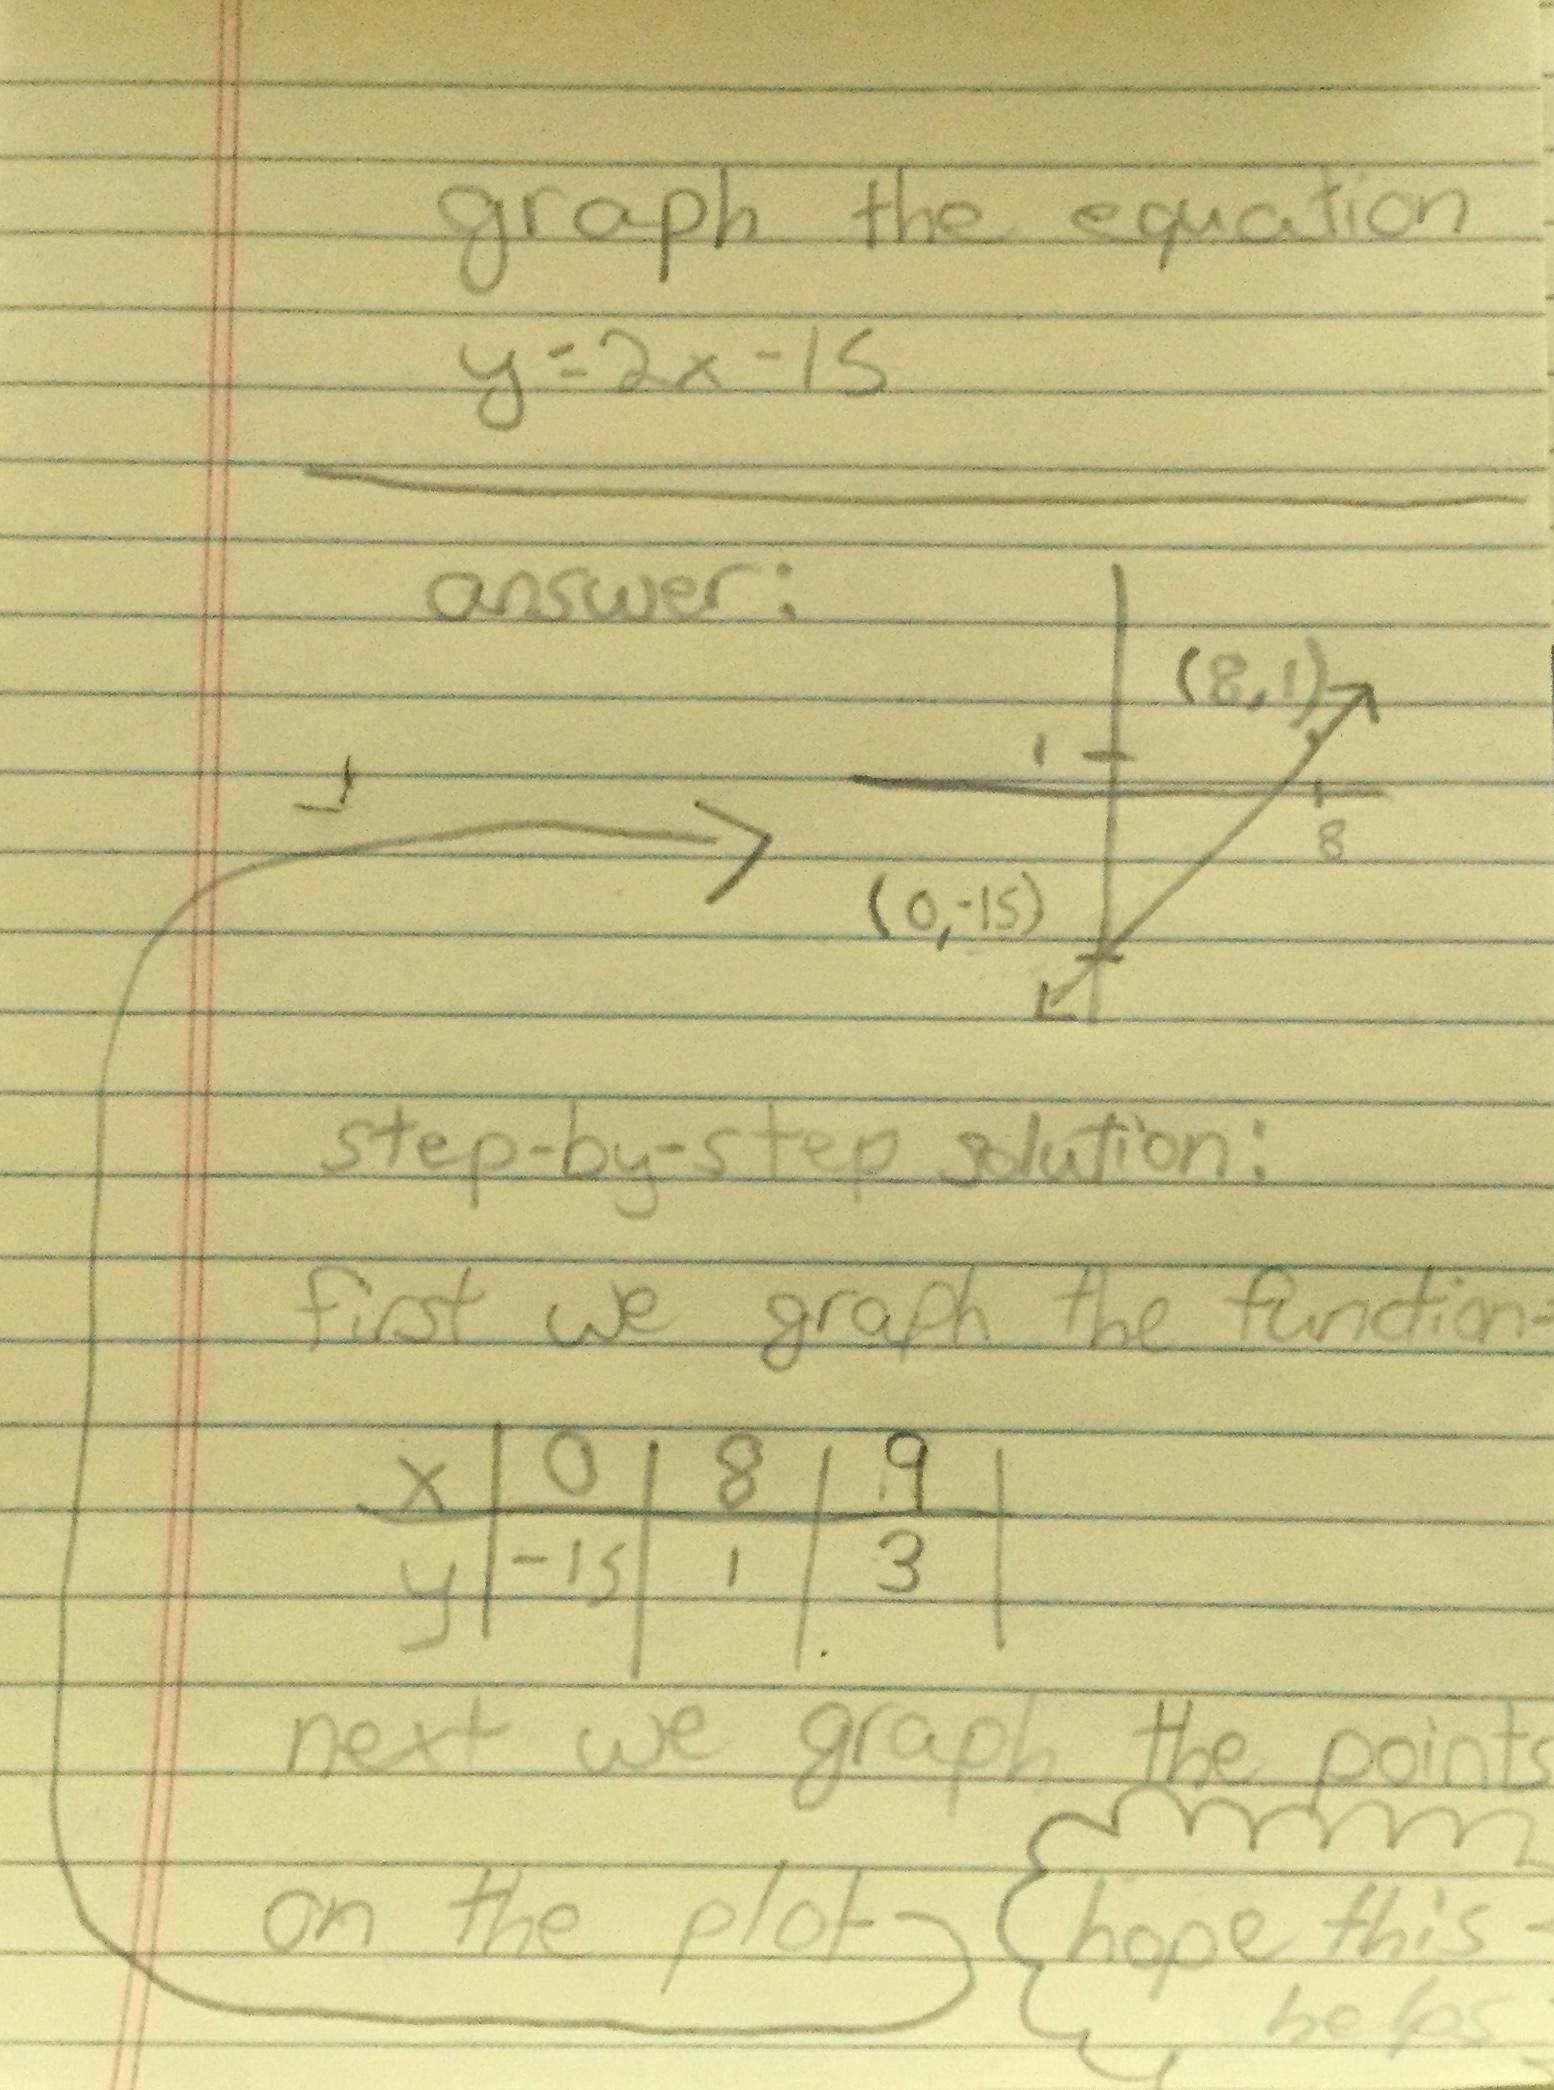 graph the equation
y=2x-15
answer:
(8,1)
1
8
(0,-15)
step-by-step solution:
first we graph the function
x 0 8 9
y -15 1 3
next we graph the points
on the plot
hope this
helps